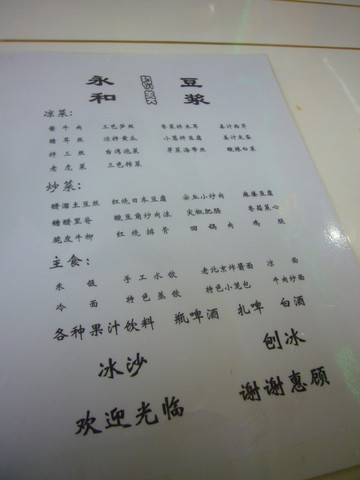 永和 豆浆
凉菜：
酱牛肉 三色笋丝 香菜拌木耳 姜汁西芹
猪耳丝 凉拌黄瓜 小葱拌豆腐 姜汁支菜
拌三丝 台湾泡菜 芽菜海带丝 酸辣白菜
老虎菜 三色拌菜
炒菜：
醋溜土豆丝 红烧日本豆腐 尖豆小炒肉 麻婆豆腐
糖醋里脊 酸豆角炒肉沫 尖椒肥肠 香菇菜心
脆皮牛柳 红烧排骨 回锅肉 鸡腿
主食：
米饭 手工水饺 老北京炸酱面 凉面
冷面 特色蒸饺 特色小笼包 牛肉炒面
各种果汁饮料 瓶啤酒 扎啤 白酒
冰沙 刨冰
欢迎光临 谢谢惠顾